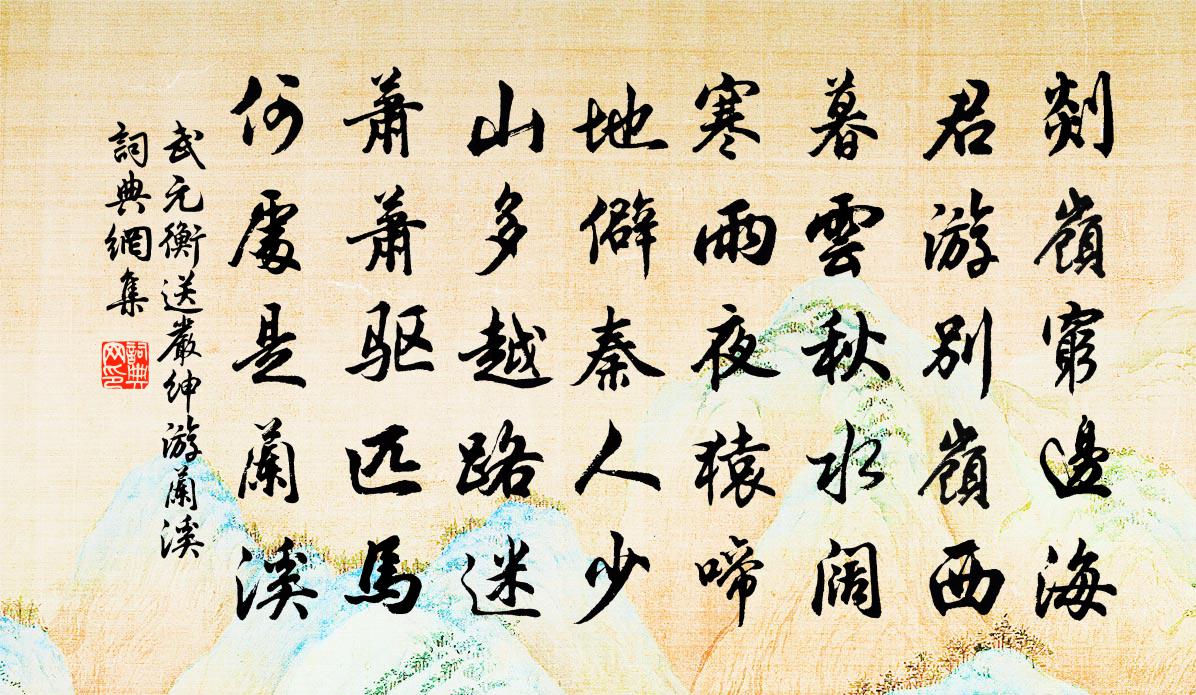 剡嶺窮邊海
君游別嶺西
暮雲秋水闊
寒雨夜猿啼
地僻秦人少
山多越路迷
蕭蕭驱匹馬
何處是蘭溪
武元衡送嚴紳游蘭溪
詞典網集
詞典网印